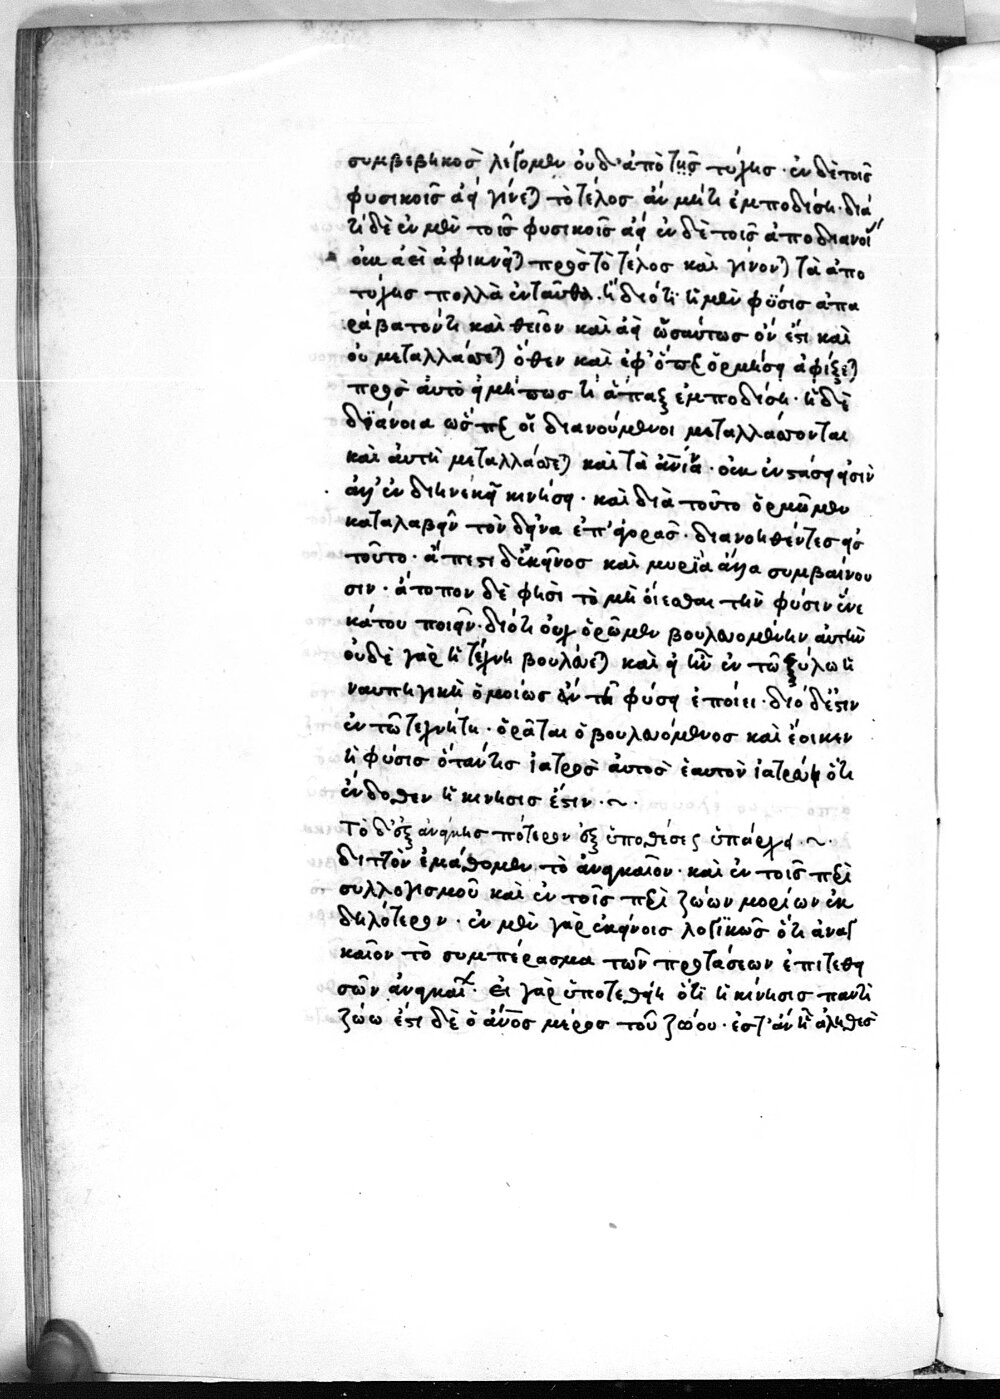 συμβεβηκὸς λέγομεν οὐδ' ἀπὸ τῆς τύχης· ἐν δὲ τοῖς
φυσικοῖς ἀεὶ γίνεται τὸ τέλος ἂν μή τι ἐμποδίση· διὰ
τί δὲ ἐν μὲν τοῖς φυσικοῖς ἀεὶ ἐν δὲ τοῖς ἀπὸ διανοί
οὐκ ἀεὶ ἀφικνεῖται πρὸς τὸ τέλος καὶ γίνονται τὰ ἀπὸ
τύχης πολλὰ ἐνταῦθα. ἢ διότι ἡ μὲν φύσις ἀπα
ράβατόν τι καὶ θεῖον καὶ ἀεὶ ὡσαύτως ὄν ἐστι καὶ
οὐ μεταλλάττεται ὅθεν καὶ ἐφ' ὅπερ ὁρμήσει ἀφίξεται
πρὸς αὐτὸ εἰ μή πως τι ἅπαξ ἐμποδίση· ἡ δὲ
διάνοια ὥσπερ οἱ διανούμενοι μεταλλάττονται
καὶ αὐτὴ μεταλλάττεται καὶ τὰ · οὐκ ἐν στάσει εἰσὶν
ἀλλ' ἐν διηνεκεῖ κινήσει· καὶ διὰ τοῦτο ὁρμῶμεν
καταλαβεῖν τὸν δεῖνα ἐπ' ἀγορᾶς· διανοηθέντες εἰς
τοῦτο· ἄπεστι δὲ κεῖνος καὶ μυρία ἄλλα συμβαίνου
σιν· ἄτοπον δέ φησι τὸ μὴ οἴεσθαι τὴν φύσιν ἕνε
κά του ποιεῖν· διότι οὐχ ὁρῶμεν βουλευομένην αὐτὴν
οὐδὲ γὰρ ἡ τέχνη βουλεύεται καὶ εἰ ἦν ἐν τῶ ξύλω ἡ
ναυπηγικὴ ὁμοίως ἂν τῆ φύσει ἐποίει· διὸ δέ ἐστιν
ἐν τῶ τεχνήτη· ὁρᾶται ὁ βουλευόμενος καὶ ἔοικεν
ἡ φύσις ὅταν τις ἰατρὸς αὐτὸς ἑαυτὸν ἰατρεύη ὅτι
ἔνδοθεν ἡ κίνησις ἐστιν· ~ ·
Τὸ δ' ἐξ ἀνάγκης πότερον ἐξ ὑποθέσεως ὑπάρχει· ~ ·
διττὸν ἐμάθομεν τὸ ἀναγκαῖον· καὶ ἐν τοῖς περὶ
συλλογισμοῦ καὶ ἐν τοῖς περὶ ζώων μορίων ἐκ
δηλότερον· ἐν μὲν γὰρ ἐκείνοις λογικῶς ὅτι ἀναγ
καῖον τὸ συμπέρασμα τῶν προτάσεων ἐπιτεθει
σῶν ἀναγκαῖον· εἰ γὰρ ὑποτεθείη ὅτι ἡ κίνησις παντὶ
ζώω ἐστι δὲ ὁ ἄνος μέρος τοῦ ζώου· ἔστ' ἂν ἦ ἀληθὲς